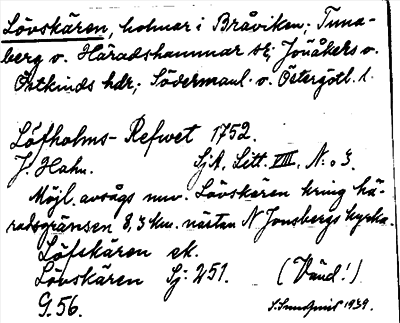 Lövskären, holmar i Bråviken; Tuna-
berg o. Häradshammar sr; Jönåkers o.
Östkinds hdr; Södermanl. o. Östergötl. l.
Löfholms-Refwet 1752.
J. Hahn. SjK. Litt. VIII. N:o 3.
Möjl. avsågs nuv. Lövskären kring hä-
radsgränsen 8,3 km. nästan N Jonsbergs kyrka.
Löfskären ek.
Lövskären Sj: 251. (Vänd!)
G. 56. S. Sundqvist 1939.